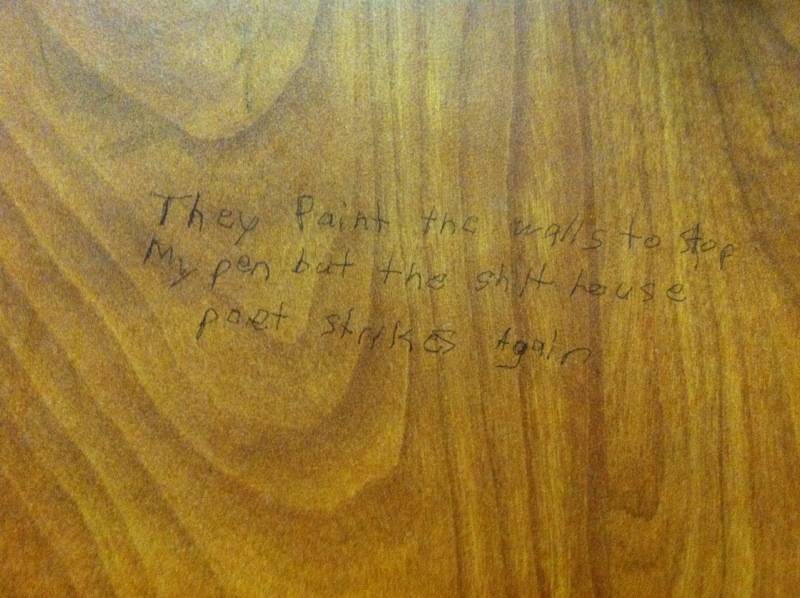 They Paint the walls to stop
My pen but the shit house
poet strikes Again